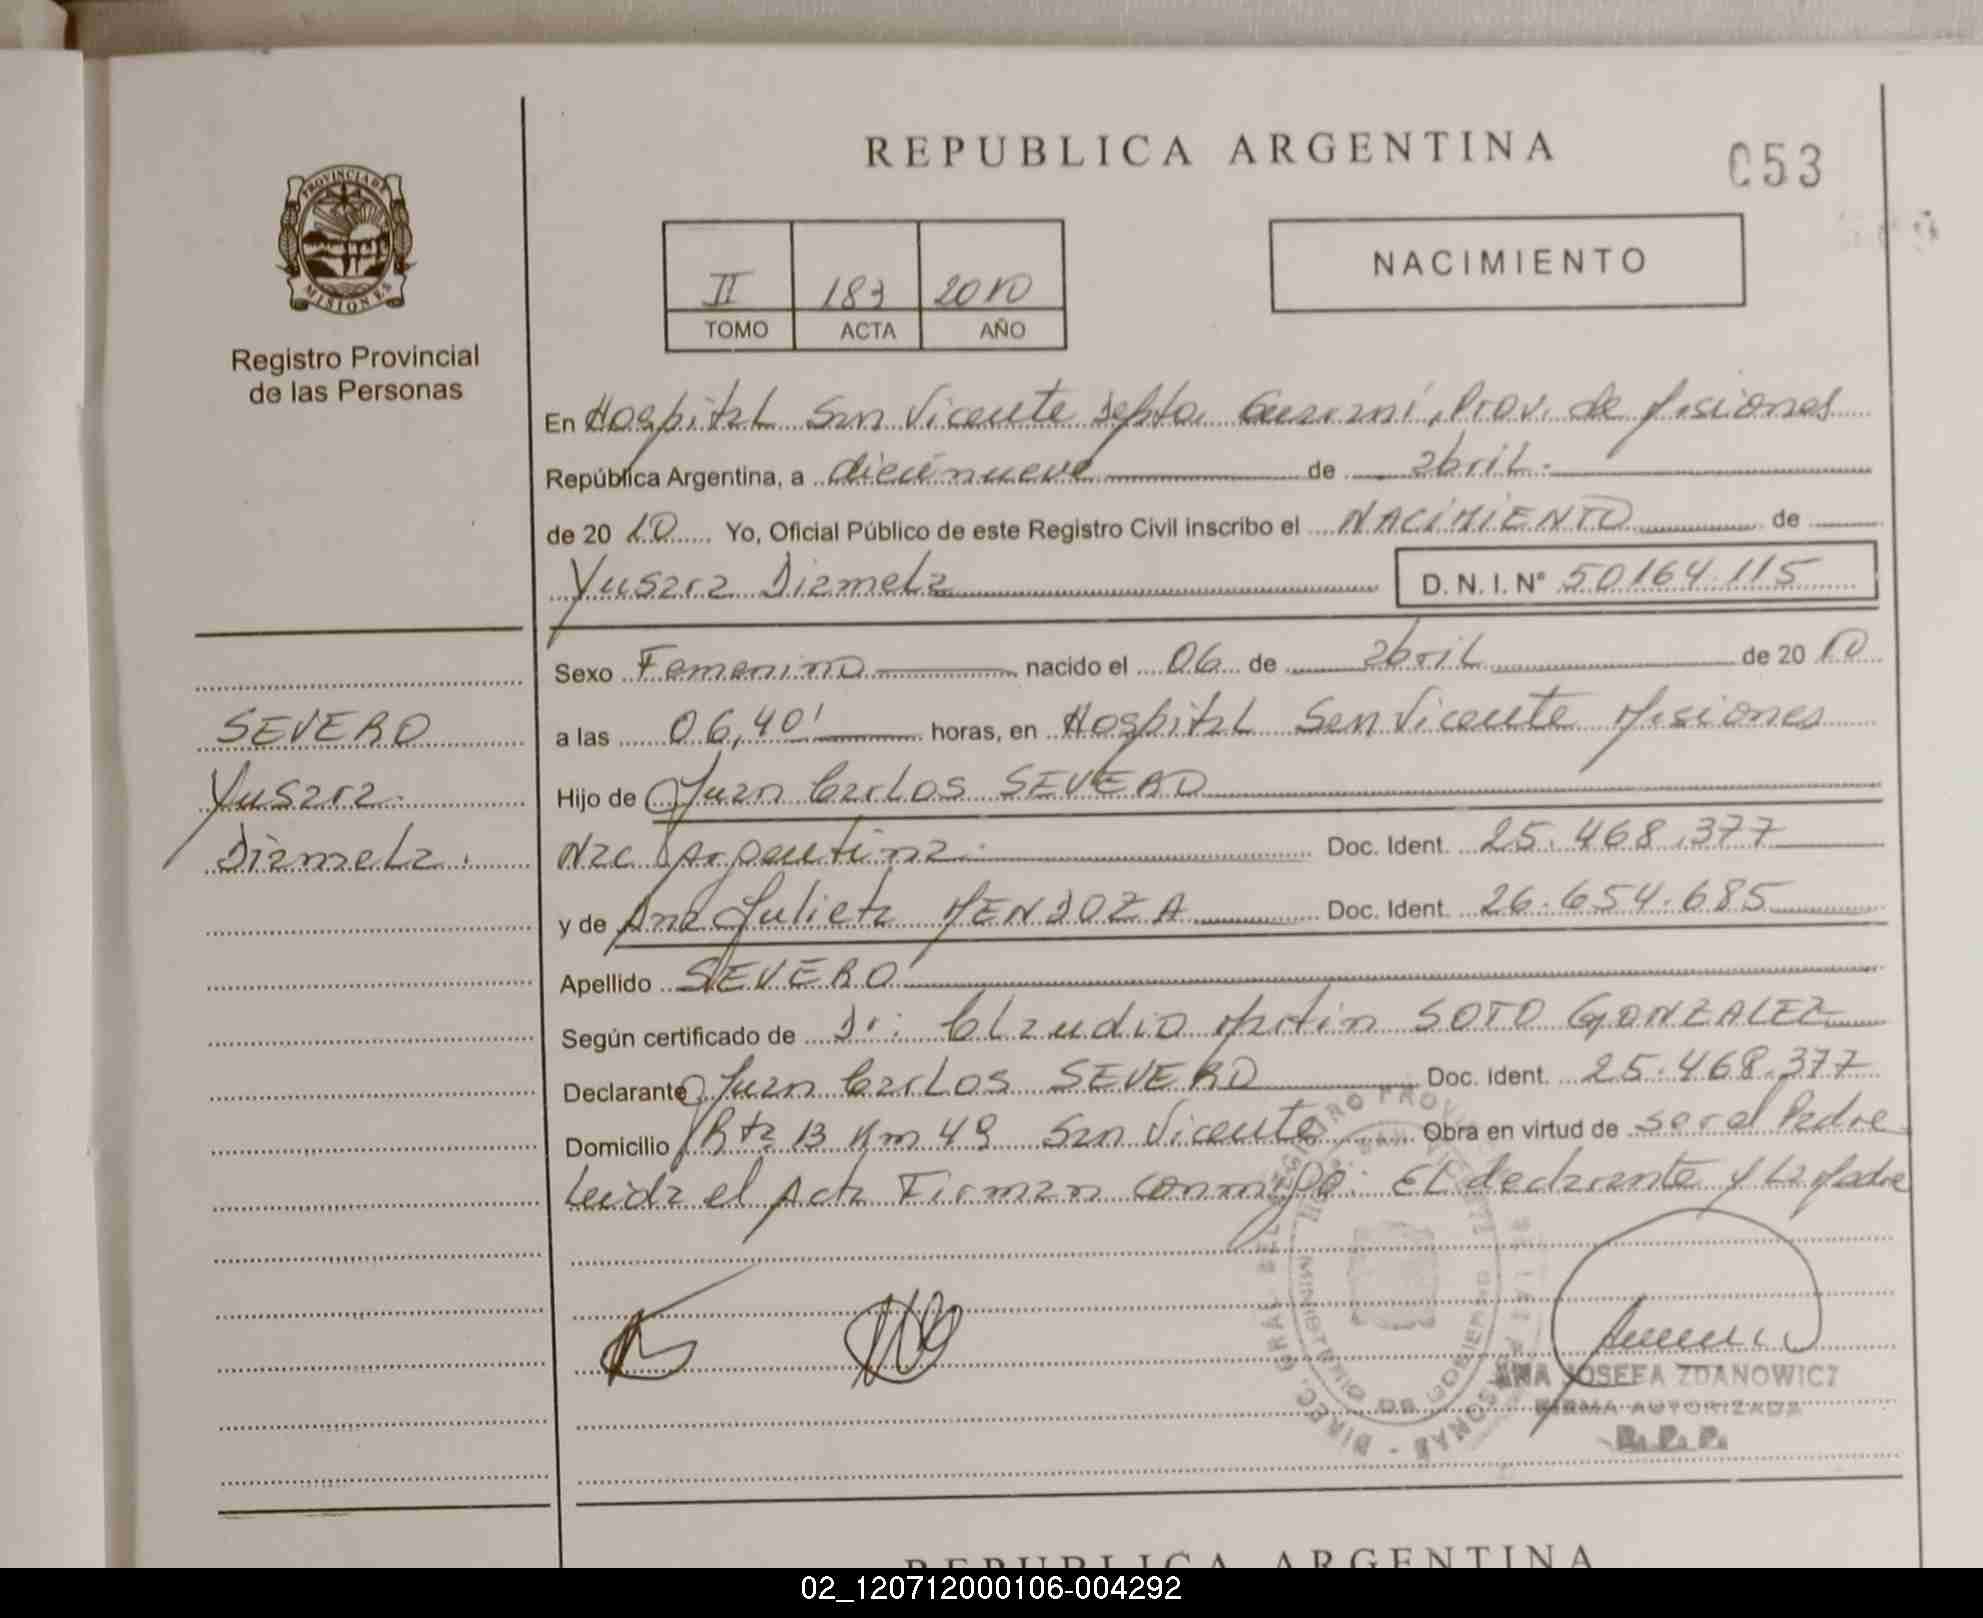 REPUBLICA ARGENTINA
C53
PROVINCIA DE
MISIONES
Registro Provincial
de las Personas
II 183 2010
TOMO ACTA AÑO
NACIMIENTO
En Hospital San Vicente Depto. Guaraní, Prov. de Misiones
República Argentina, a diecinueve de abril.
de 20 10 Yo, Oficial Público de este Registro Civil inscribo el NACIMIENTO de
Yusara Diamela D. N. I. N° 50164.115
Sexo Femenino nacido el 06 de abril de 20 10
a las 06,40' horas, en Hospital San Vicente Misiones
Hijo de Juan Carlos SEVERO
Nac Argentina. Doc. Ident. 25.468.377
y de Ana Julieta MENDOZA Doc. Ident. 26.654.685
Apellido SEVERO
Según certificado de Dr: Claudio Martin SOTO GONZALEZ
Declarante Juan Carlos SEVERO Doc. Ident. 25.468.377
Domicilio Rta 13 Km 49 San Vicente Obra en virtud de ser el Padre
Leida el Acta Firman conmigo: El declarante y La Madre
SEVERO
Yusara
Diamela.
MINISTERIO DE GOBIERNO
ANA JOSEFA ZDANOWICZ
FIRMA AUTORIZADA
R. P. P.
REPUBLICA ARGENTINA
02_120712000106-004292